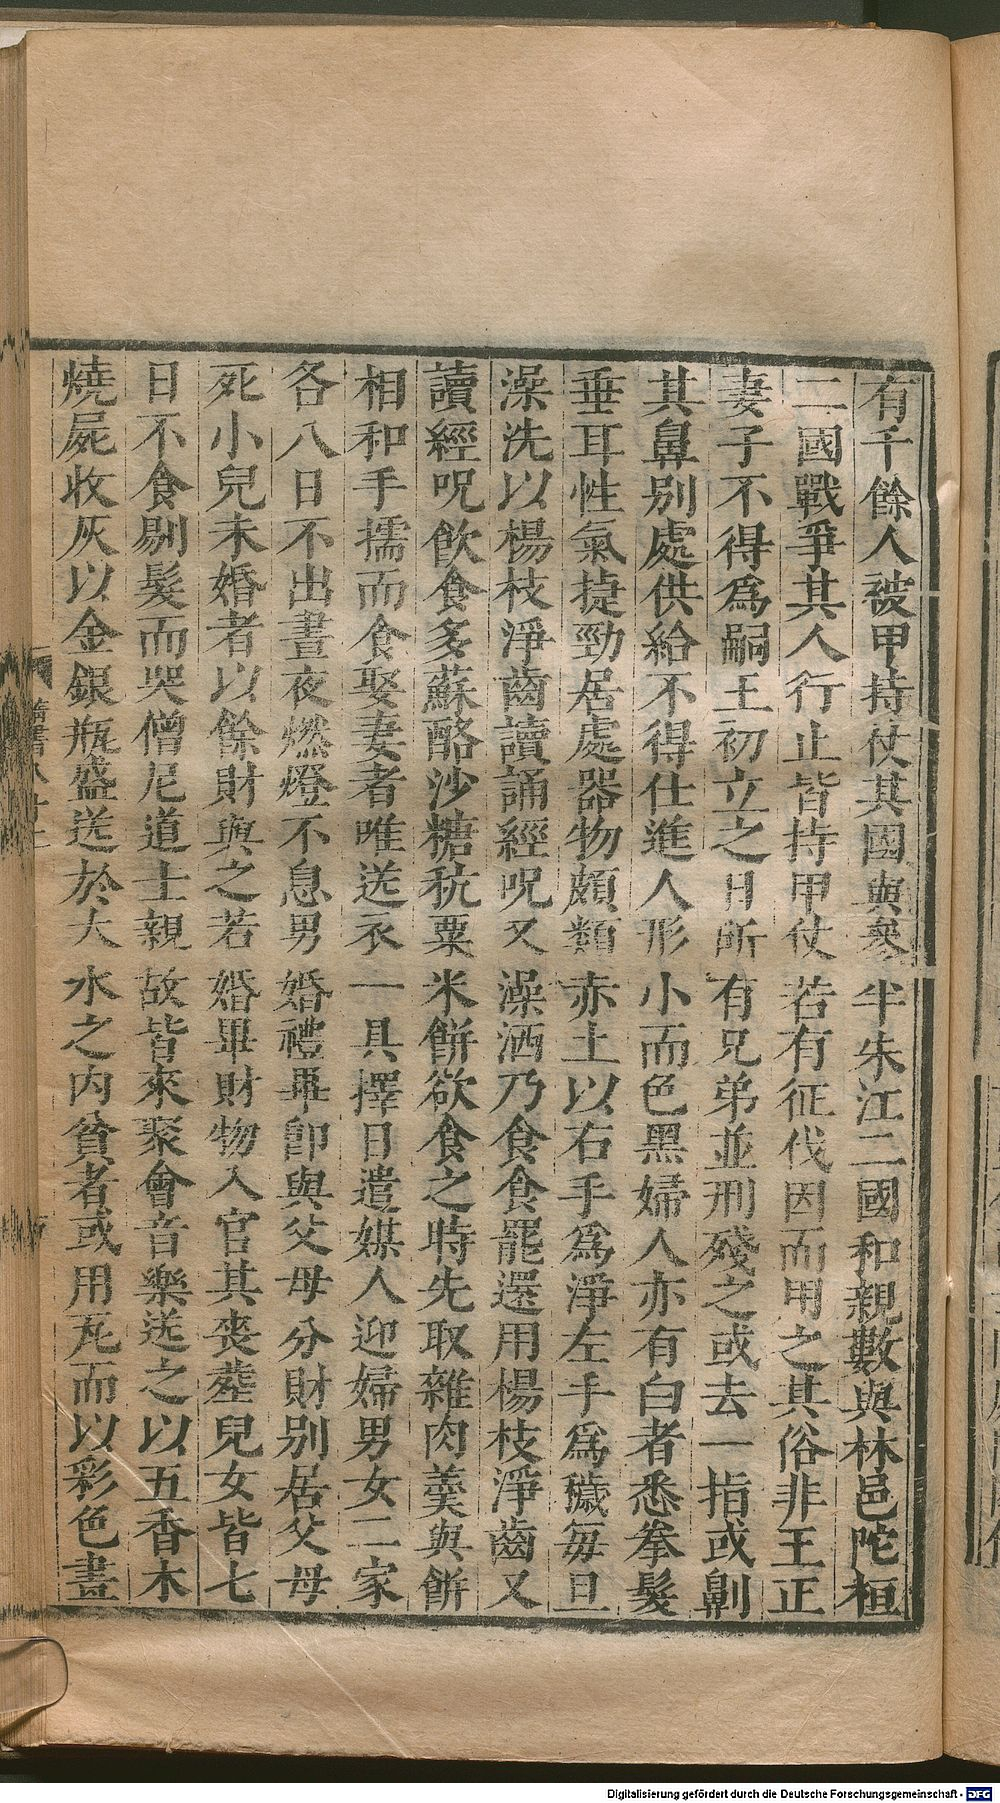 有千餘人被甲持仗其國與參半朱江二國和親數與林邑陀桓
二國戰爭其人行止皆持甲仗若有征伐因而用之其俗非王正
妻子不得爲嗣王初立之日所有兄弟並刑殘之或去一指或劓
其鼻別處供給不得仕進人形小而色黑婦人亦有白者悉拳髮
垂耳性氣捷勁居處器物頗類赤土以右手爲淨左手爲穢每旦
澡洗以楊枝淨齒讀誦經呪又澡洒乃食食罷還用楊枝淨齒又
讀經呪飲食多蘇酪沙糖秔粟米餅欲食之時先取雜肉羹與餅
相和手擩而食娶妻者唯送衣一具擇日遣媒人迎婦男女二家
各八日不出晝夜燃燈不息男婚禮畢卽與父母分財別居父母
死小兒未婚者以餘財與之若婚畢財物入官其喪葬兒女皆七
日不食剔髮而哭僧尼道士親故皆來聚會音樂送之以五香木
燒屍收灰以金銀瓶盛送於大水之內貧者或用瓦而以彩色畫
Digitalisierung gefördert durch die Deutsche Forschungsgemeinschaft - DFG